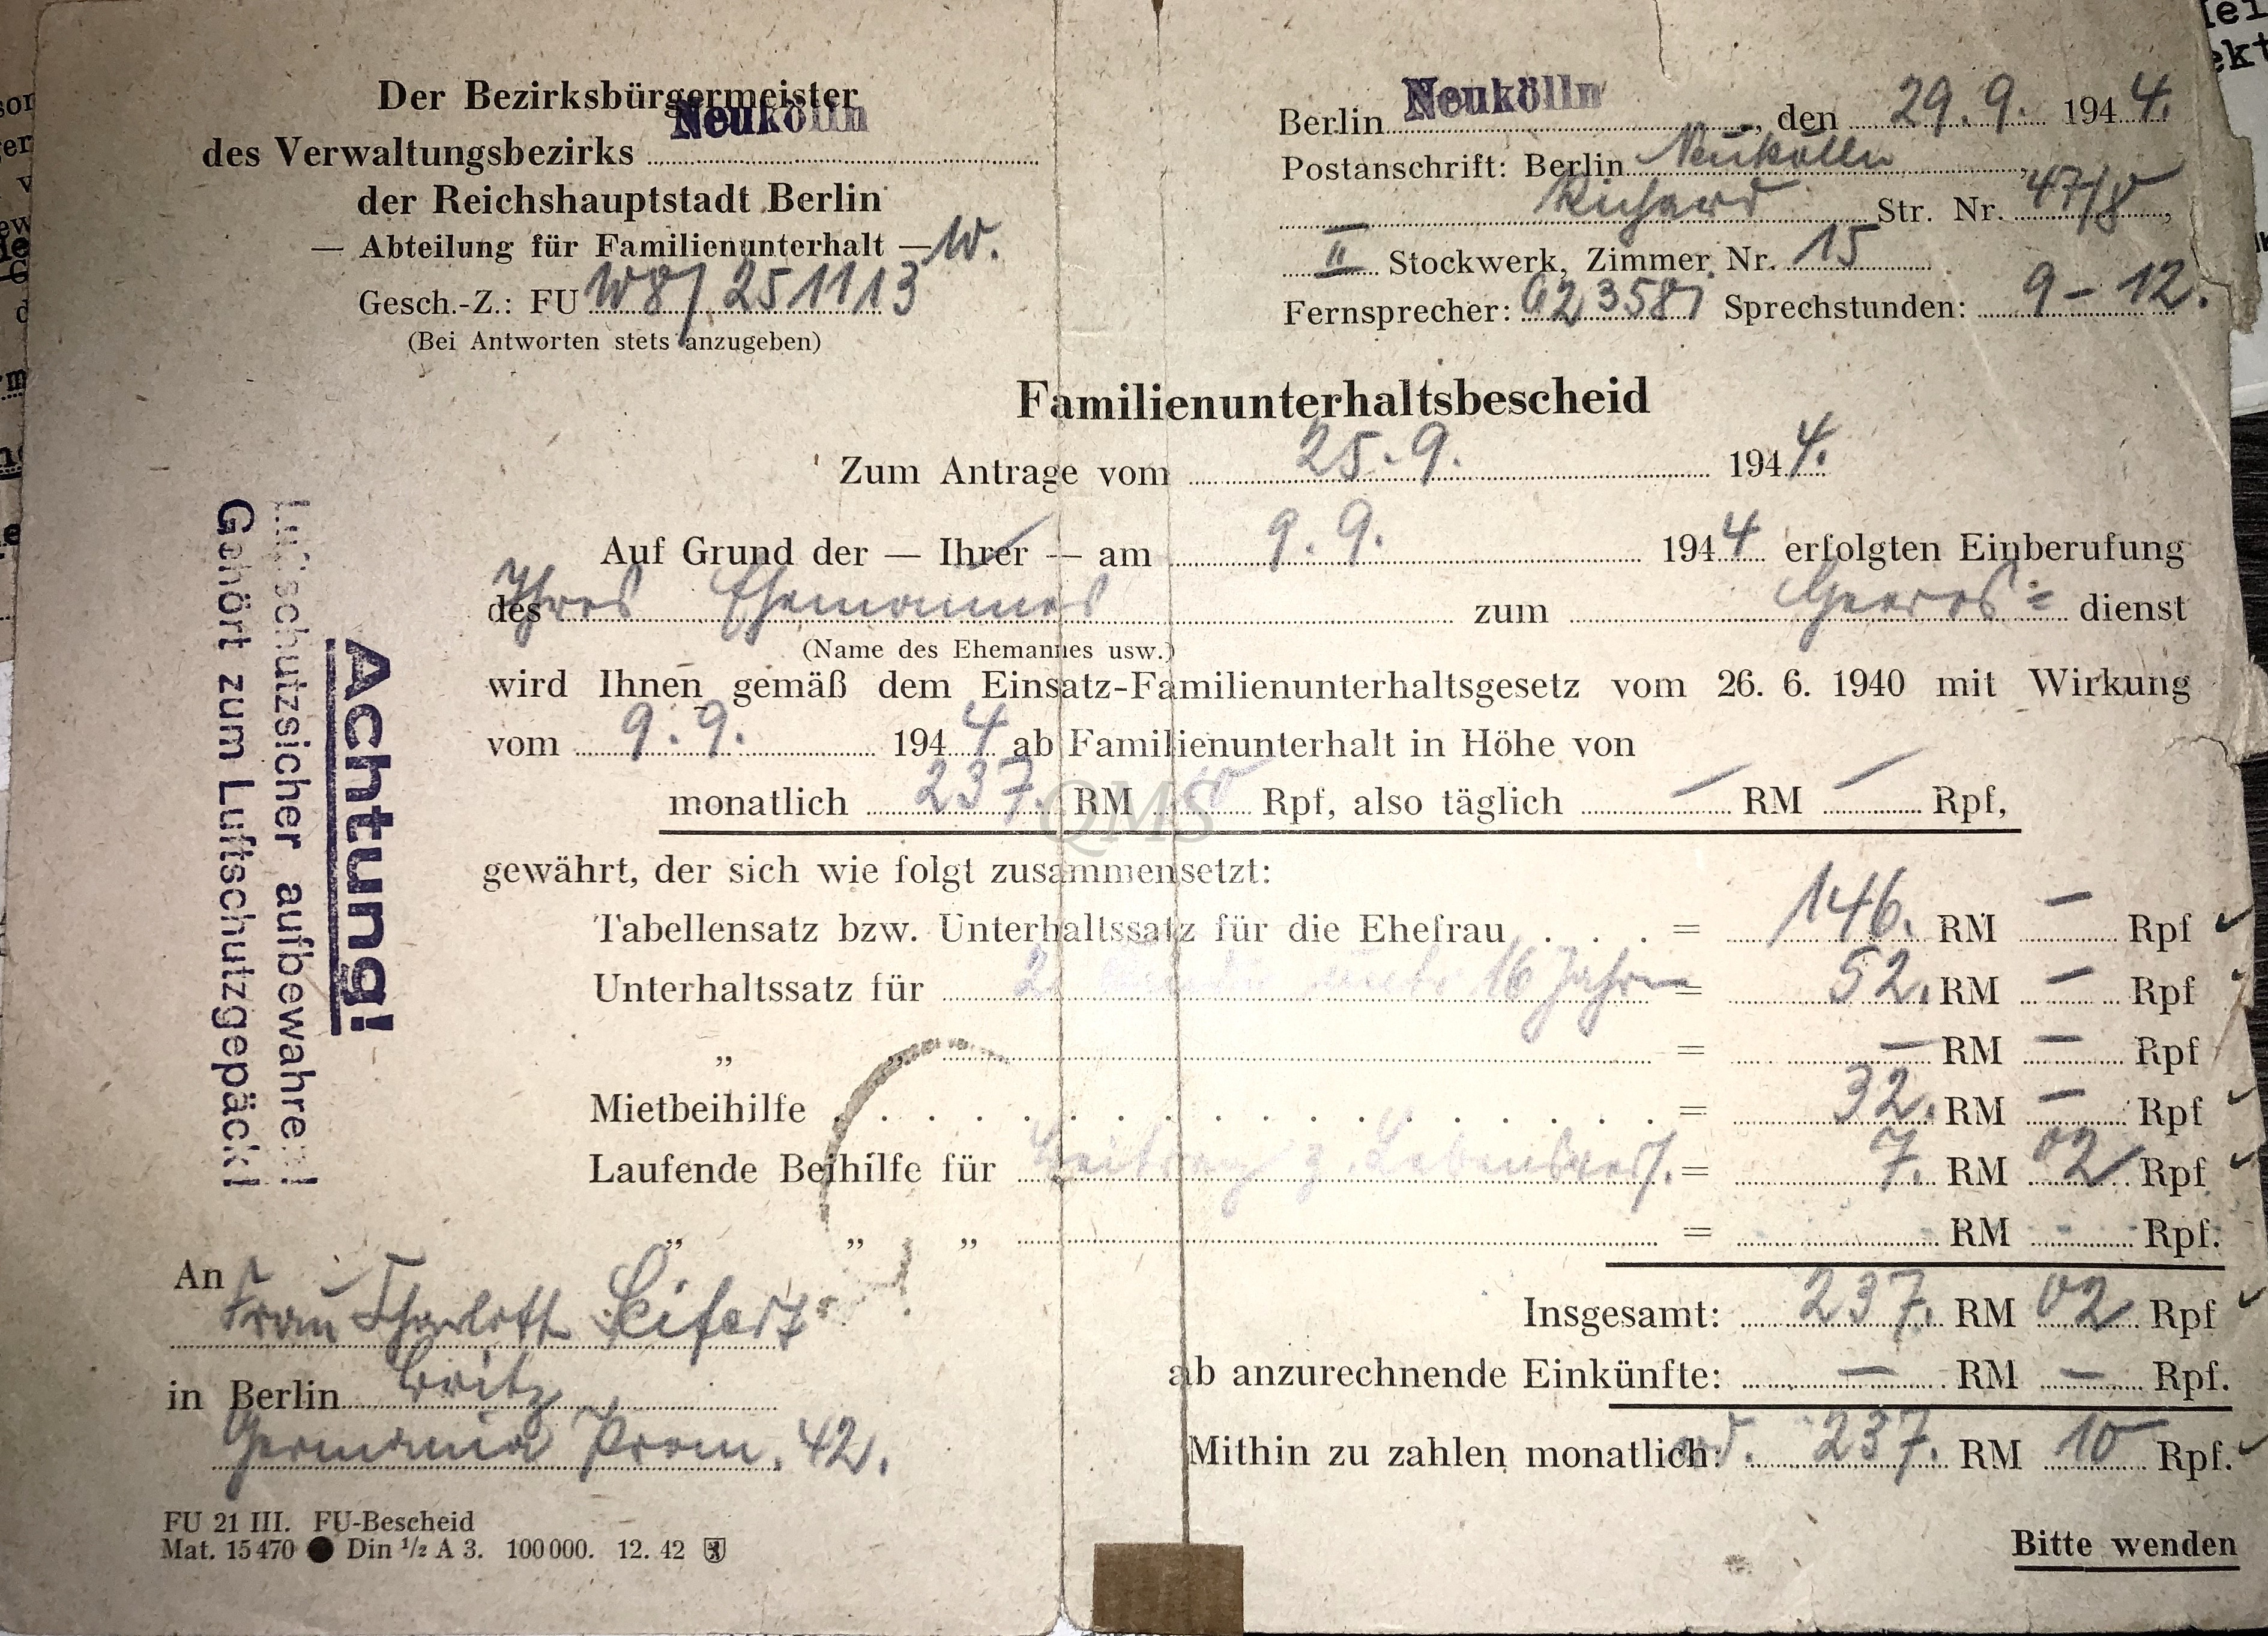 Der Bezirksbürgermeister
des Verwaltungsbezirks Neukölln
der Reichshauptstadt Berlin
— Abteilung für Familienunterhalt — W.
Gesch.-Z.: FU W8/251113
(Bei Antworten stets anzugeben)
Berlin Neukölln, den 29.9. 1944.
Postanschrift: Berlin Neukölln,
Richard Str. Nr. 47/8,
II Stockwerk, Zimmer Nr. 15
Fernsprecher: 623581 Sprechstunden: 9-12.
Familienunterhaltsbescheid
Zum Antrage vom 25.9. 1944.
Auf Grund der — Ihrer — am 9.9. 1944 erfolgten Einberufung
des Ihres Ehemannes zum Heeres= dienst
(Name des Ehemannes usw.)
wird Ihnen gemäß dem Einsatz-Familienunterhaltsgesetz vom 26. 6. 1940 mit Wirkung
vom 9.9. 1944 ab Familienunterhalt in Höhe von
monatlich 237. RM 10 Rpf, also täglich — RM — Rpf,
QMS
gewährt, der sich wie folgt zusammensetzt:
Tabellensatz bzw. Unterhaltssatz für die Ehefrau . . . = 146. RM — Rpf
Unterhaltssatz für 2 Kinder unter 16 Jahren = 52. RM — Rpf
„ „ = — RM — Rpf
Mietbeihilfe = 32. RM — Rpf
Laufende Beihilfe für Beitrag z. Lebensvers. = 7. RM 02 Rpf
„ „ „ = - RM - Rpf.
Insgesamt: 237. RM 02 Rpf
ab anzurechnende Einkünfte: — RM — Rpf.
Mithin zu zahlen monatlich: rd. 237. RM 10 Rpf.
Bitte wenden
Achtung!
Luftschutzsicher aufbewahren!
Gehört zum Luftschutzgepäck!
An
Frau Charlott Seifert
in Berlin Britz
Germania Prom. 42.
FU 21 III. FU-Bescheid
Mat. 15470 ● Din 1/2 A 3. 100000. 12. 42